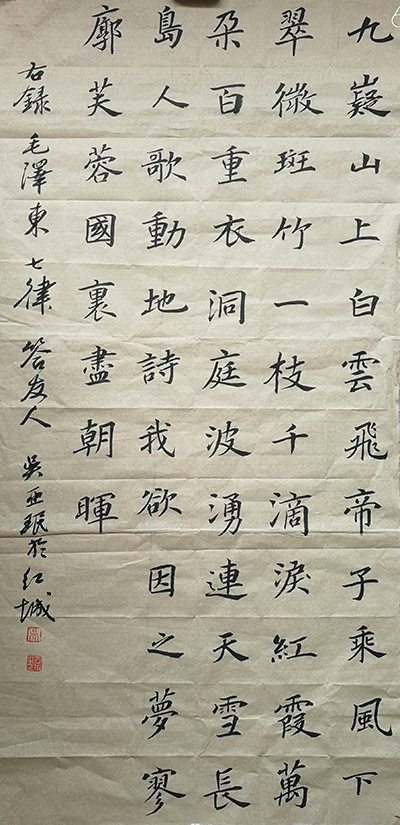 九嶷山上白雲飛帝子乘風下
翠微斑竹一枝千滴淚紅霞萬
朶百重衣洞庭波湧連天雪長
島人歌動地詩我欲因之夢寥
廓芙蓉國裏盡朝暉
右録毛澤東七律答友人吳亚珉於红城